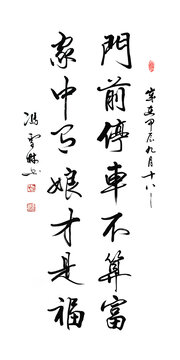 門前停車不算富
家中有娘才是福
甲辰九月十八
馮雪林书